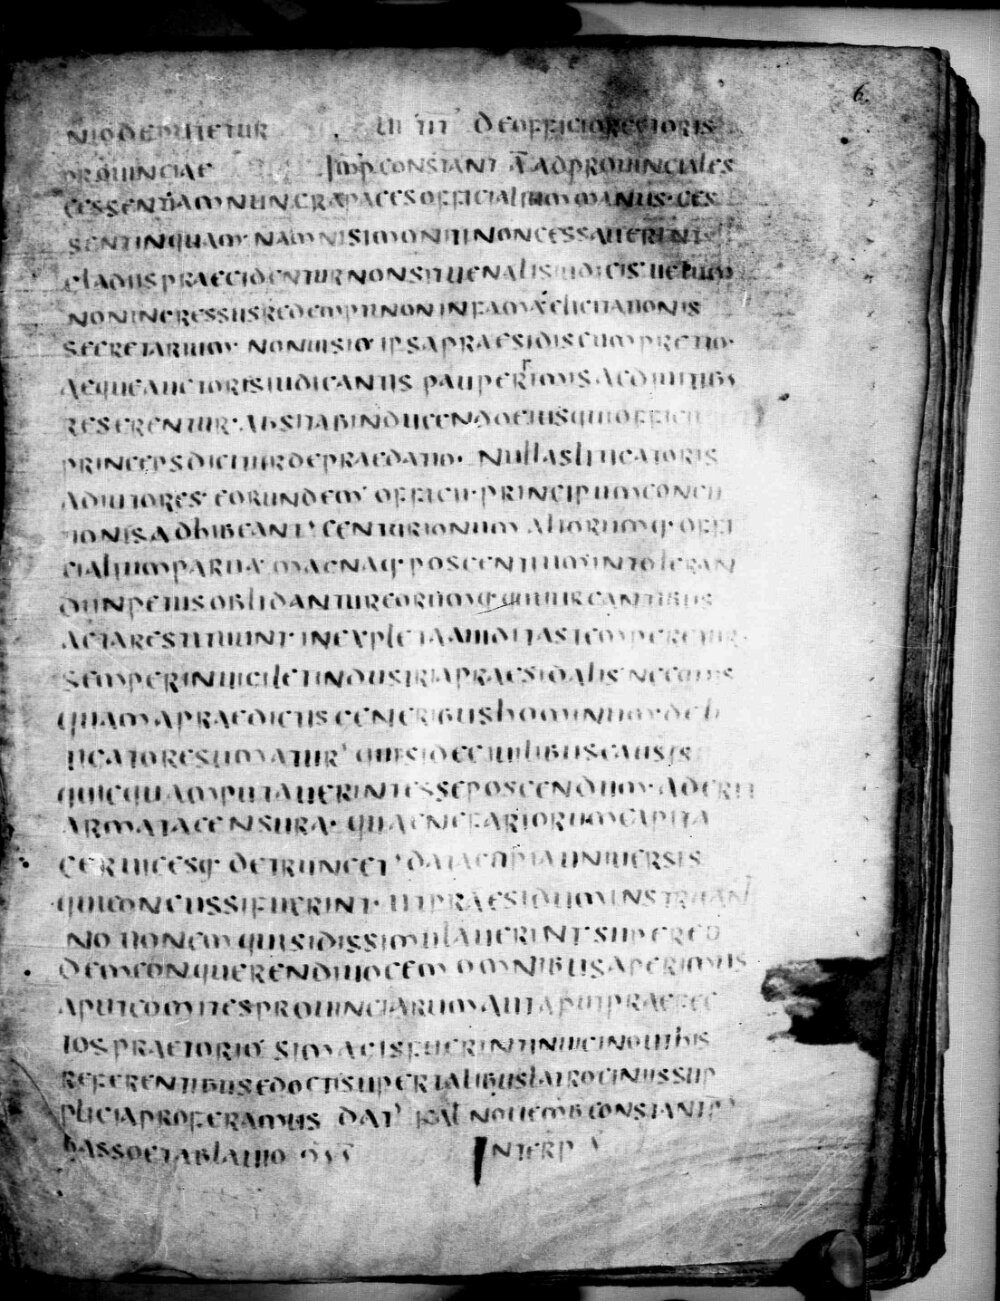 NIO DEPUTETUR UI TIT DEOFFICIORECTORIS
PROUINCIAE IMP CONSTANT A ADPROUINCIALES
CESSENTIAMNUNCRAPACESOFFICIALIUMMANUS·CES
SENTINQUAM·NAMNISIMONITINONCESSAUERINT
GLADIISPRAECIDENTURNONSITUENALISIUDICIS UELUM
NONINGRESSUSREDEMPTINONINFAMAELICITATIONIS
SECRETARIUM·NONUISIO IPSAPRAESIDISCUMPRETIO·
AEQUEAUCTORISIUDICANTIIS PAUPERRIMISACDIUITIBUS
RESERENTUR·ABSITABINDUCENDOEIUSQUIOFFICII
PRINCEPSDICITURDEPRAEDATIO·NULLASLITIGATORIS
ADIUTORES·EORUNDEM OFFICII·PRINCIPUMCONCU
TIONISADHIBEANT·CENTURIONUM ALIORUMQ·OFFI
CIALIUMPARUA MAGNAQ·POSCENTIUMINTOLERAN
DIINPETUSOBLIDANTUREORUMQ·QUIIURGANTIBUS
ACTARESTITUUNT·INEXPLETAAUIDITASTEMPERETUR·
SEMPERINUIGILETINDUSTRIAPRAESIDALISNECQUIS
QUAMAPRAEDICTISGENERIBUSHOMINUM·DELI
TIGATORESUMATUR·QUISIDECIUILIBUSCAUSIS
QUICQUAMPUTAUERINTESSEPOSCENDUM·ADERIT
ARMATACENSURA·QUAENEFARIORUMCAPITA
CERUICESQ· DETRUNCET·DATACOPIAUNIUERSIS
QUICONCUSSIFUERINT·UTPRAESIDUMINSTRUAN
NOTIONEM QUISIDISSIMULAUERINT·SUPEREO
DEMCONQUERENDIUOCEM OMNIBUSAPERIMUS
APUTCOMITESPROUINCIARUMAUTAPUTPRAEFEC
TOS·PRAETORIO SIMAGISFUERINTINUICINOUTHIS
REFERENTIBUSEDOCTISUPERTALIBUSLATROCINIISSUP
PLICIAPROFERAMUS DAT KAL NOUEMBCONSTANTP
BASSOETABLAUIO
INTERP